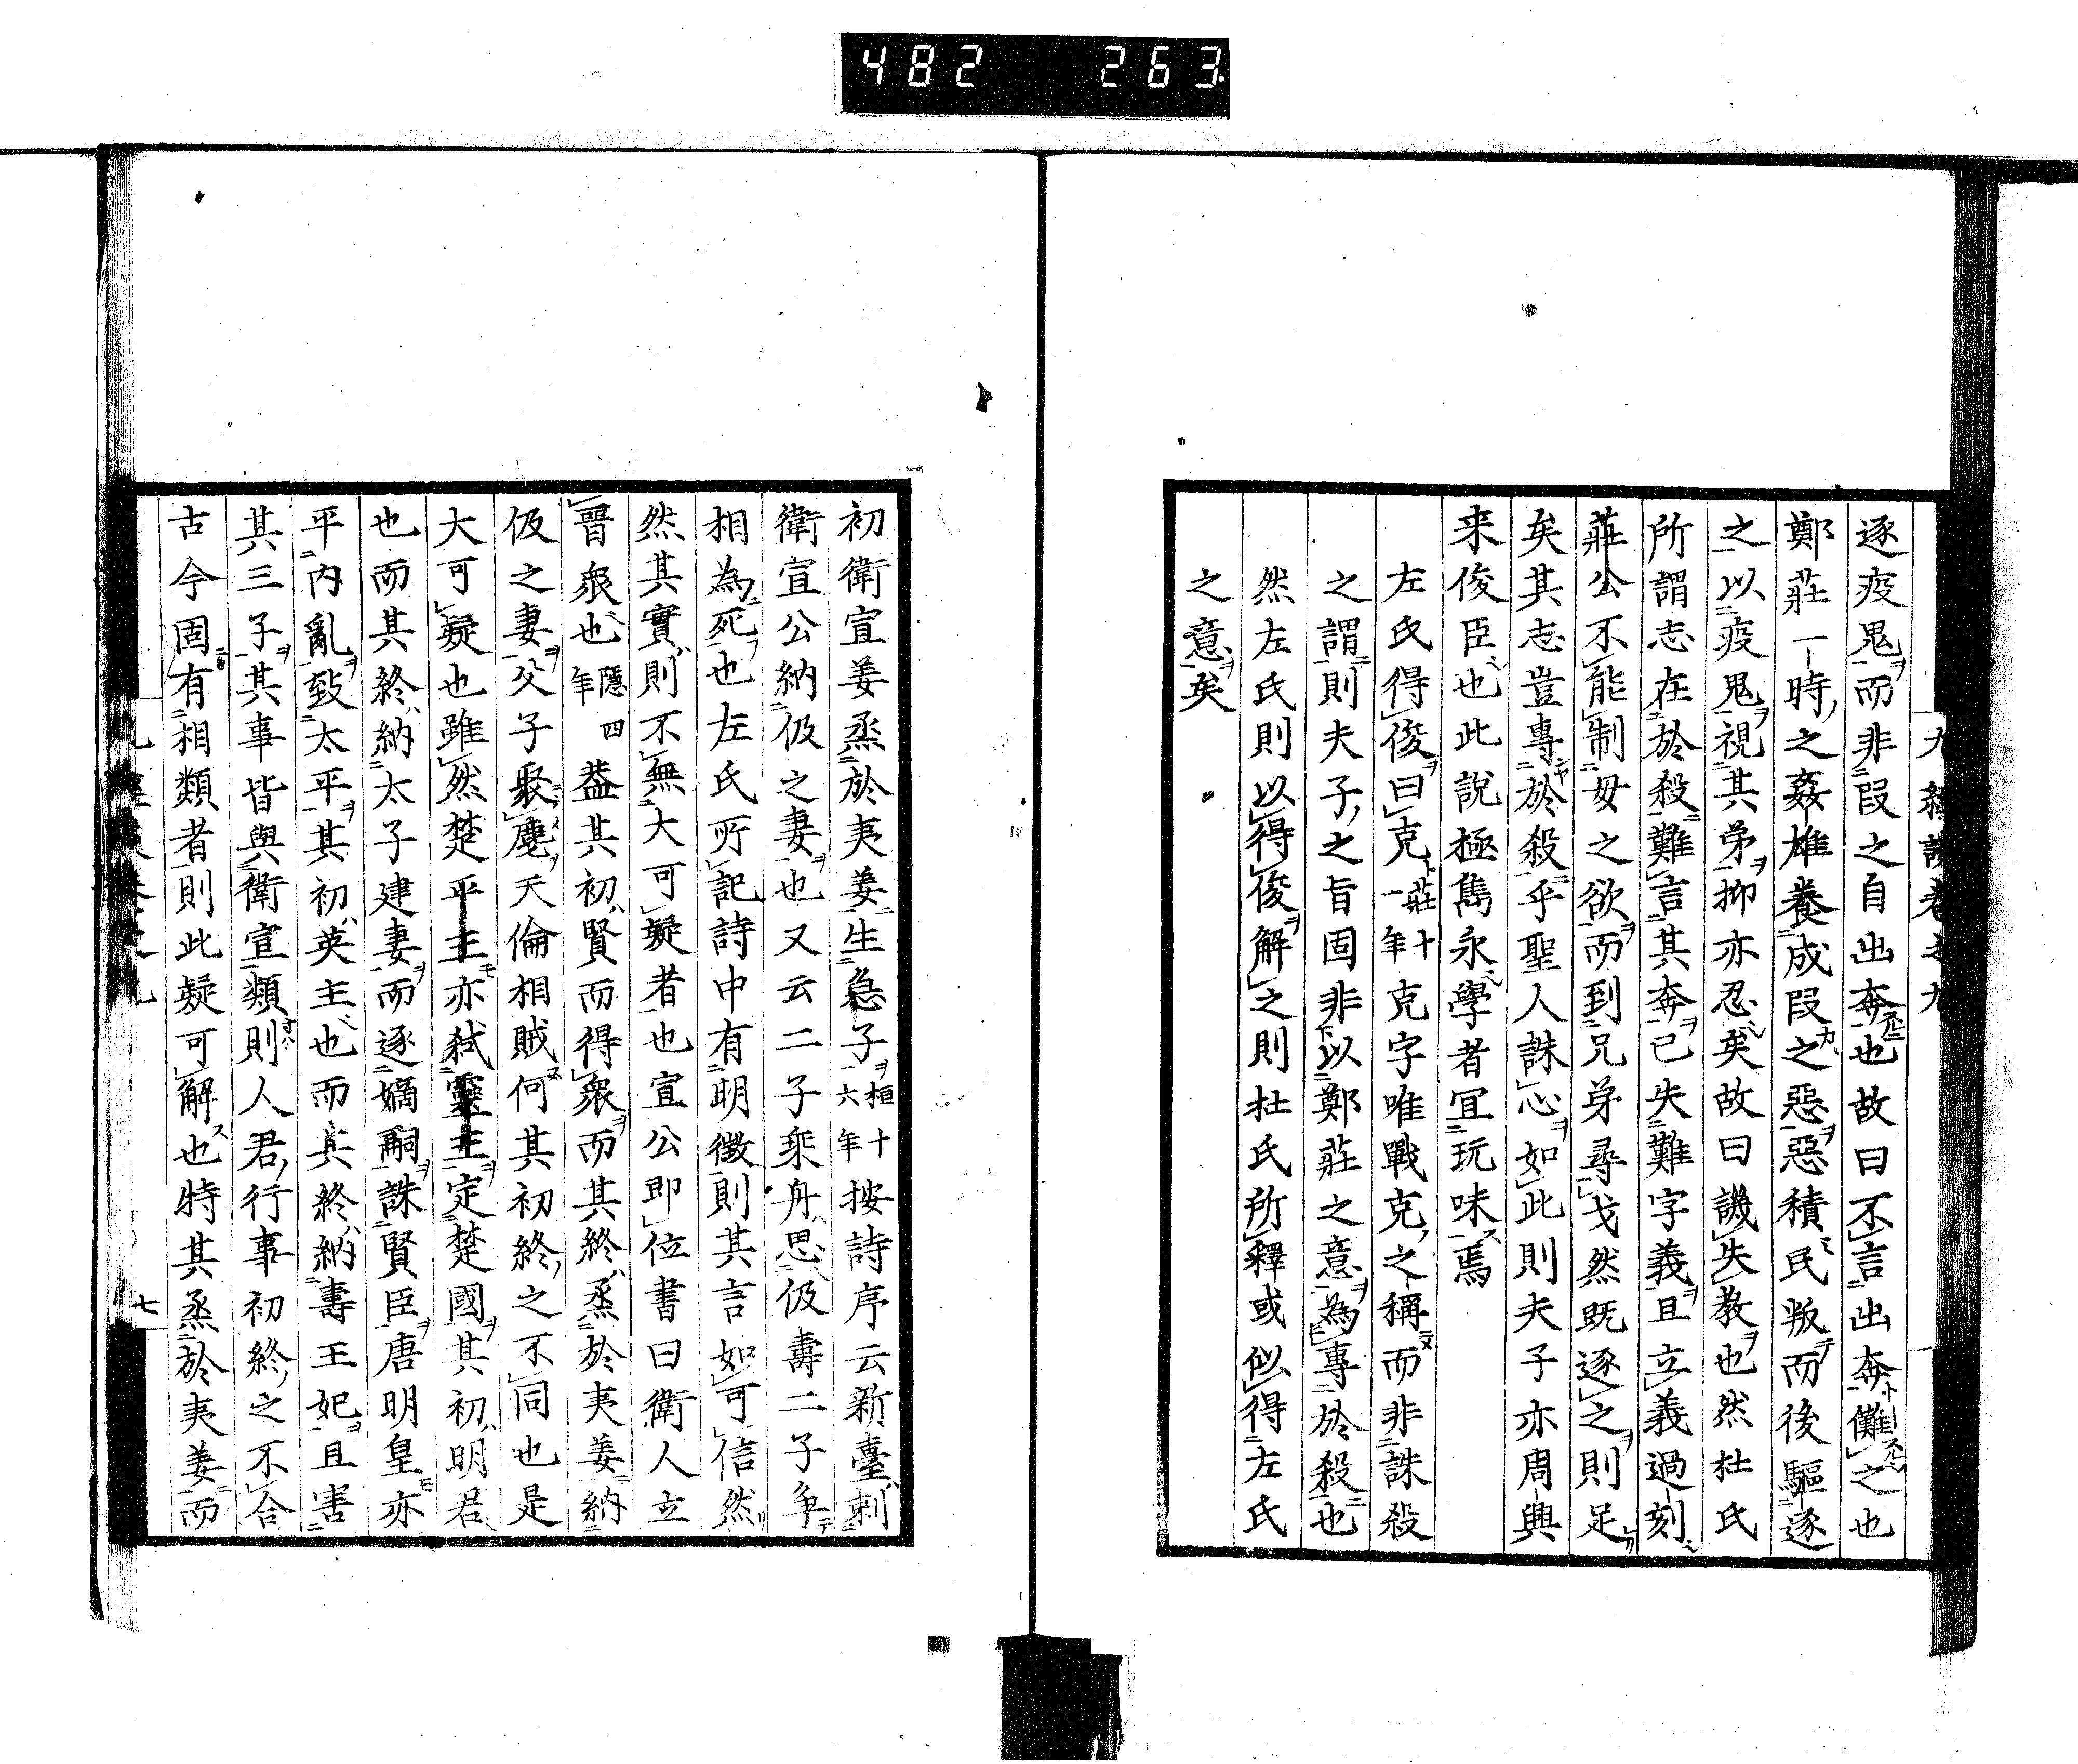 482 263
九經談卷之九
逐疫鬼而非段之自出奔也故曰不言出奔儺之也
鄭莊一時之姦雄養成段之惡惡積民叛而後驅逐
之以疫鬼視其弟抑亦忍矣故曰譏失教也然杜氏
所謂志在於殺難言其奔已失難字義且立義過刻
莊公不能制母之欲而到兄弟尋戈然既逐之則足
矣其志豈專於殺乎聖人誅心如此則夫子亦周興
来俊臣也此說極雋永學者宜玩味焉
左氏得俊曰克莊十一年克字唯戰克之稱而非誅殺
之謂則夫子之旨固非以鄭莊之意為專於殺也
然左氏則以得俊解之則杜氏所釋或似得左氏
之意矣
初衛宣姜烝於夷姜生急子桓十六年按詩序云新臺刺
衛宣公納伋之妻也又云二子乘舟思伋壽二子争
相為死也左氏所記詩中有明徵則其言如可信然
然其實則不無大可疑者也宣公即位書曰衛人立
晋衆也隱四年葢其初賢而得衆而其終烝於夷姜納
伋之妻父子聚麀天倫相賊何其初終之不同也是
大可疑也雖然楚平王亦弑靈王定楚國其初明君
也而其終納太子建妻而逐嫡嗣誅賢臣唐明皇亦
平内亂致太平其初英主也而其終納壽王妃且害
其三子其事皆與衛宣類則人君行事初終之不合
古今固有相類者則此疑可解也特其烝於夷姜而
七